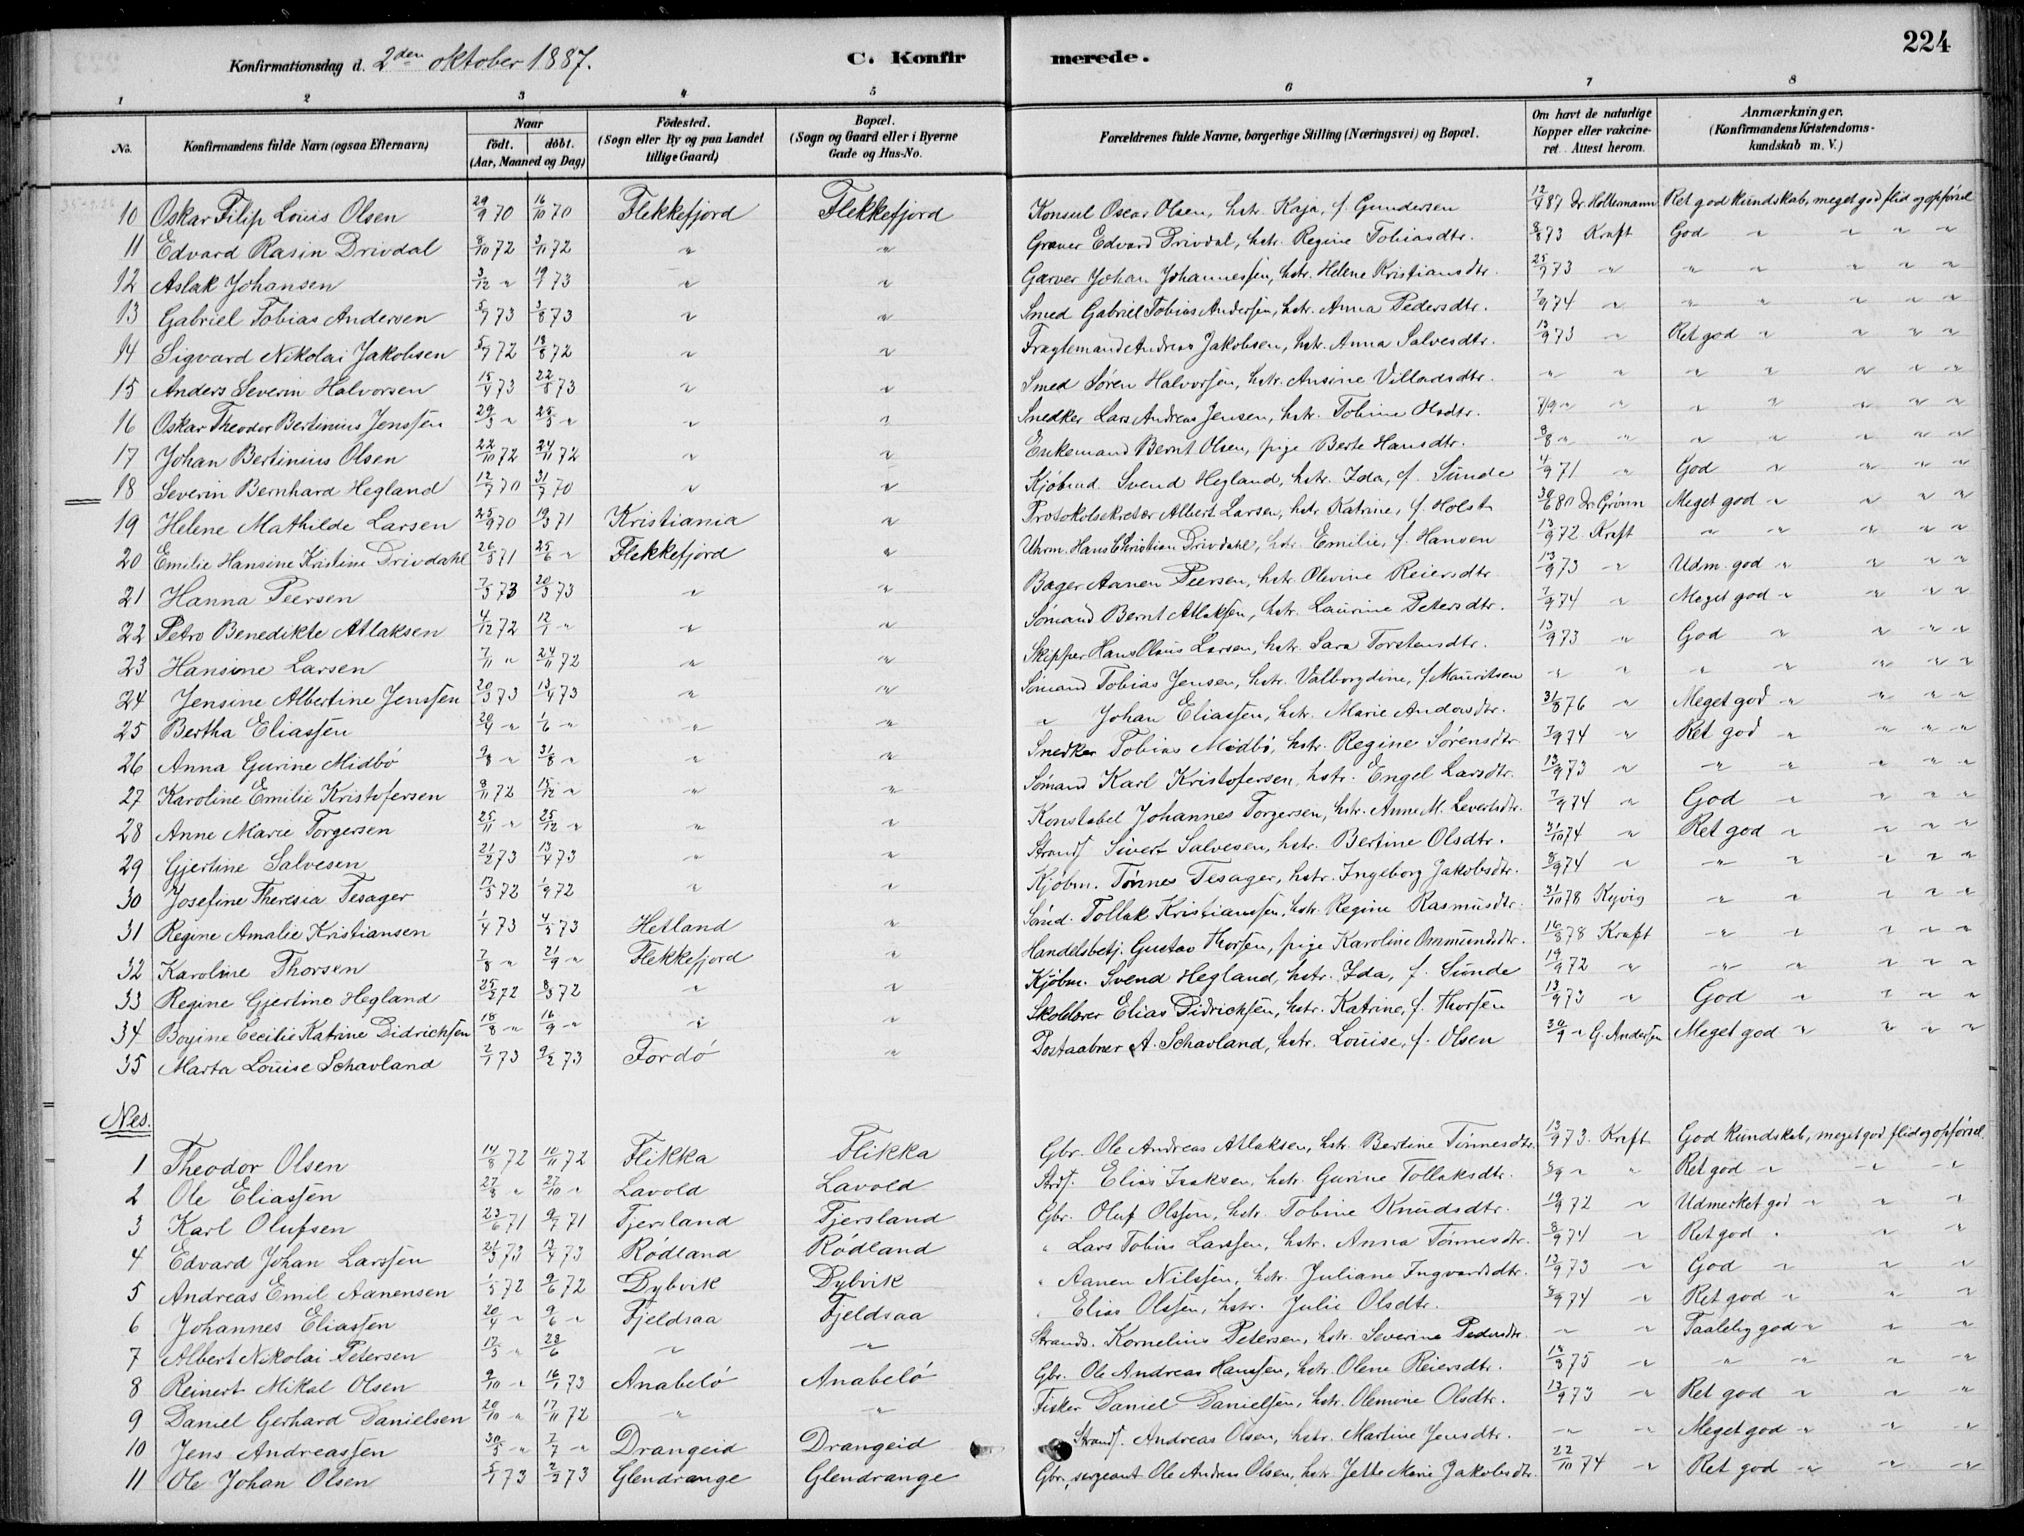 224
Konfirmationsdag d. 2den oktober 1887.
C. Konfirmerede.
1 2 3 4 5 6 7 8
No. | Konfirmandens fulde Navn (ogsaa Efternavn) | Naar født. døbt. (Aar, Maaned og Dag) | Fødested. (Sogn eller By og paa Landet tillige Gaard) | Bopæl. (Sogn og Gaard eller i Byerne Gade og Hus-No. | Forældrenes fulde Navne, borgerlige Stilling (Næringsvei) og Bopæl. | Om havt de naturlige Kopper eller vakcineret. Attest herom. | Anmærkninger. (Konfirmandens Kristendomskundskab m. V.)
10 Oskar Filip Louis Olsen 29/9 70 16/10 70 Flekkefjord Flekkefjord Konsul Oscar Olsen, hstr. Kaja, f. Gundersen 12/9 87 Dr. Holtermann Ret god kundskab, meget god flid og opførsel
11 Edvard Rasin Drivdal 8/10 72 3/11 72 " " Graver Edvard Drivdal, hstr. Regine Tobiasdtr. 8/8 73 Kraft God " " " "
12 Aslak Johansen 3/12 " 19/1 73 " " Garver Johan Johannessen, hstr. Helene Kristiansdtr. 25/7 73 " " " " " "
13 Gabriel Tobias Andersen 5/7 73 3/8 73 " " Smed Gabriel Tobias Andersen, hstr. Anna Pedersdtr. 7/9 74 " " " " " "
14 Sigvard Nikolai Jakobsen 5/7 72 18/8 72 " " Fragtemand Andreas Jakobsen, hstr. Anna Salvesdtr. 13/9 73 " Ret god " " " "
15 Anders Severin Halvorsen 15/4 73 22/5 73 " " Smed Søren Halvorsen, hstr. Ansine Villadsdtr. " " " " " " "
16 Oskar Theodor Bertinius Jenssen 29/3 " 25/5 " " " Snedker Lars Andreas Jensen, hstr. Tobine Olsdtr. 7/9 " " " " " " "
17 Johan Bertinius Olsen 22/10 72 24/11 72 " " Enkemand Bernt Olsen, pige Berte Hansdtr. 8/8 " " " " " " "
18 Severin Bernhard Hegland 12/7 70 31/7 70 " " Kjøbmd. Svend Hegland, hstr. Ida, f. Sunde 4/9 71 " God " " " "
19 Helene Mathilde Larsen 25/9 70 19/3 71 Kristiania " Protokolsekretær Albert Larsen, hstr. Katrine, f. Holst 30/6 80 Dr. Grønn Meget god " " " "
20 Emilie Hansine Kristine Drivdahl 26/5 71 25/6 " Flekkefjord " Uhrm. Hans Christian Drivdahl, hstr. Emilie, f. Hansen 13/9 72 Kraft " " " " "
21 Hanna Peersen 7/3 73 20/5 73 " " Bager Aanen Peersen, hstr. Olevine Reiersdtr. 13/9 73 " Udm. god " " " "
22 Petro Benedikte Atlaksen 4/12 72 12/1 " " " Sømand Bernt Atlaksen, hstr. Laurine Petersdtr. 7/9 74 " Meget god " " " "
23 Hansine Larsen 7/11 " 24/11 72 " " Skipper Hans Olaus Larsen, hstr. Sara Torstensdtr. 13/9 73 " God " " " "
24 Jensine Albertine Jenssen 20/3 73 13/4 73 " " Sømand Tobias Jensen, hstr. Valborgdine, f. Mauritsen " " " " " " "
25 Bertha Eliassen 20/4 " 1/6 " " " " Johan Eliassen, hstr. Marie Andersdtr. 31/8 76 " Meget god " " " "
26 Anna Gurine Midbø 9/8 " 31/8 " " " Snedker Tobias Midbø, hstr. Regine Sørensdtr. 7/9 74 " Ret god " " " "
27 Karoline Emilie Kristofersen 8/11 72 15/12 " " " Sømand Karl Kristofersen, hstr. Engel Larsdtr. 13/9 73 " " " " " "
28 Anne Marie Torgersen 25/11 " 25/12 " " " Konstabel Johannes Torgersen, hstr. Anne M. Levertsdtr. 7/9 74 " God " " " "
29 Gjertine Salvesen 21/2 73 13/4 73 " " Strands. Sivert Salvesen, hstr. Bertine Olsdtr. 31/10 74 " Ret god " " " "
30 Josefine Theresia Tesager 17/5 72 1/9 72 " " Kjøbm. Tønnes Tesager, hstr. Ingeborg Jakobsdtr. 8/9 74 " " " " " "
31 Regine Amalie Kristiansen 1/4 73 4/5 73 Hetland " Sømd. Tollak Kristianssen, hstr. Regine Rasmusdtr. 31/10 78 Kyvig " " " " "
32 Karoline Thorsen 7/8 " 21/9 " Flekkefjord " Handelsbetj. Gustav Thorsen, pige Karoline Ommundsdtr. 16/8 78 Kraft " " " " "
33 Regine Gjertine Hegland 25/2 72 8/3 72 " " Kjøbm. Svend Hegland, hstr. Ida, f. Sunde 19/9 72 " " " " " "
34 Boyine Cecilie Katrine Didrichsen 18/8 " 16/9 " " " Skolelærer Elias Didrichsen, hstr. Katrine, f. Thorsen 13/9 73 " God " " " "
35 Marta Louise Schavland 2/1 73 9/2 73 Fordø " Postaabner A. Schavland, hstr. Louise, f. Olsen 30/9 " G. Andersen Meget god " " " "
Nes.
1 Theodor Olsen 14/8 72 10/11 72 Flikka Flikka Gbr. Ole Andreas Atlaksen, hstr. Bertine Tønnesdtr. 13/9 73 Kraft God Kundskab, meget god flid og opførsel
2 Ole Eliassen 27/8 " 27/10 " Lavold Lavold Strds. Elias Isaksen, hstr. Gurine Tollaksdtr. 8/9 " " Ret god " " "
3 Karl Olufsen 23/6 71 9/7 71 Tjersland Tjersland Gbr. Oluf Olssen, hstr. Tobine Knudsdtr. 19/9 72 " Udmerket god " " "
4 Edvard Johan Larssen 21/3 73 13/4 73 Rødland Rødland " Lars Tobias Larssen, hstr. Anna Tønnesdtr. 8/9 74 " Ret god " " "
5 Andreas Emil Aanensen 1/5 72 9/6 72 Dybvik Dybvik " Aanen Nilssen, hstr. Juliane Ingvardsdtr. 13/9 73 " God " " "
6 Johannes Eliassen 20/4 " 9/6 " Fjeldsaa Fjeldsaa " Elias Olssen, hstr. Julie Olsdtr. 8/9 74 " Ret god " " "
7 Albert Nikolai Petersen 17/5 " 23/6 " " Strands. Kornelius Petersen, hstr. Severine Pedersdtr. " " Taalelig god " " "
8 Reinert Mikal Olsen 9/10 " 16/1 73 Anabelø Anabelø Gbr. Ole Andreas Hanssen, hstr. Olene Reiersdtr. 18/8 75 " " " " "
9 Daniel Gerhard Danielsen 20/10 " 17/11 72 " " Fisker Daniel Danielsen, hstr. Olemine Olsdtr. 13/9 73 " Ret god " " "
10 Jens Andreassen 30/5 " 7/7 " Drangeid Drangeid Strands. Andreas Olsen, hstr. Martine Jensdtr. " " Meget god " " "
11 Ole Johan Olsen 5/1 73 2/2 73 Glendrange Glendrange Gbr., sergeant Ole Andreas Olsen, hstr. Jette Marie Jakobsdtr. 22/10 74 " Ret god " " "